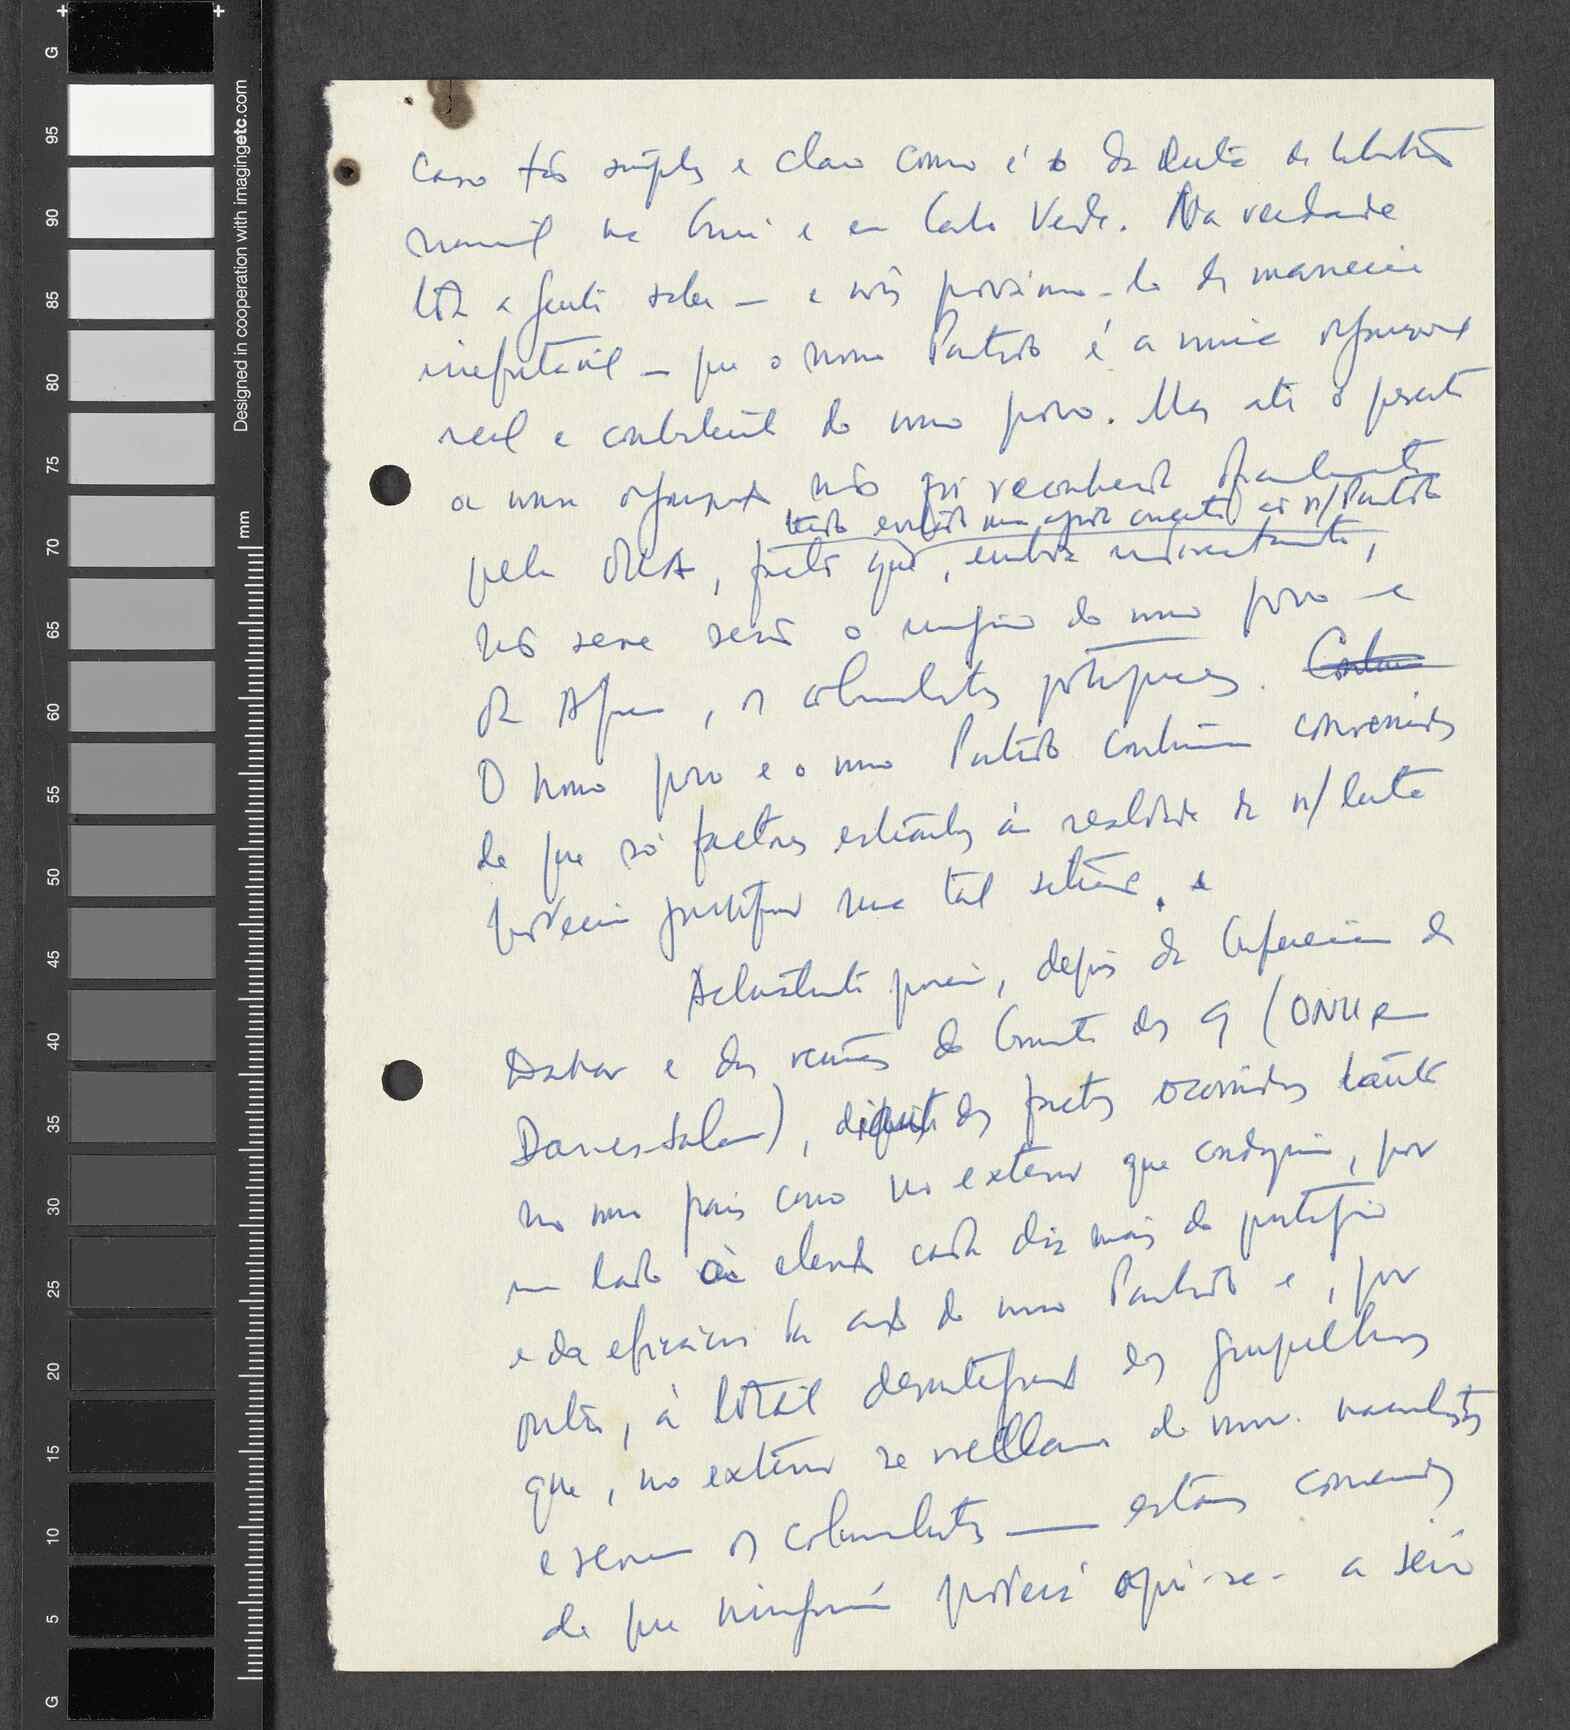 caso tão simples e claro como é o da luta de libertação
nacional na Guiné e em Cabo Verde. Na verdade
toda a gente sabe — e nós provámo-lo de maneira
irrefutável — que o nosso Partido é a única organização
real e combatente do nosso povo. Mas até o presente
a nossa organização não foi reconhecida oficialmente
tendo embora um apoio concreto ao n/Partido
pela OUA, facto que, embora indirectamente,
não serve senão o inimigo do nosso povo e
da África, os colonialistas portugueses.
O nosso povo e o nosso Partido continuam convencidos
de que só factores estranhos à realidade da n/luta
poderiam justificar uma tal situação.
Actualmente porém, depois da Conferência de
Dakar e das reuniões do Comité dos 9 (
Dar-es-Salam), dos factos ocorridos tanto
no nosso país como no exterior que conduziram, por
um lado à elevação cada dia mais do prestígio
e da eficácia da acção do nosso Partido e, por
outro, à total desintegração dos grupelhos
que, no exterior se reclamam do nosso nacionalismo
e servem os colonialistas — estamos convencidos
de que ninguém poderá opôr-se a sério
G
95
90
85
80
75
70
65
60
55
50
45
40
35
30
25
20
15
10
5
G
mm
mm
Designed in cooperation with imagingetc.com